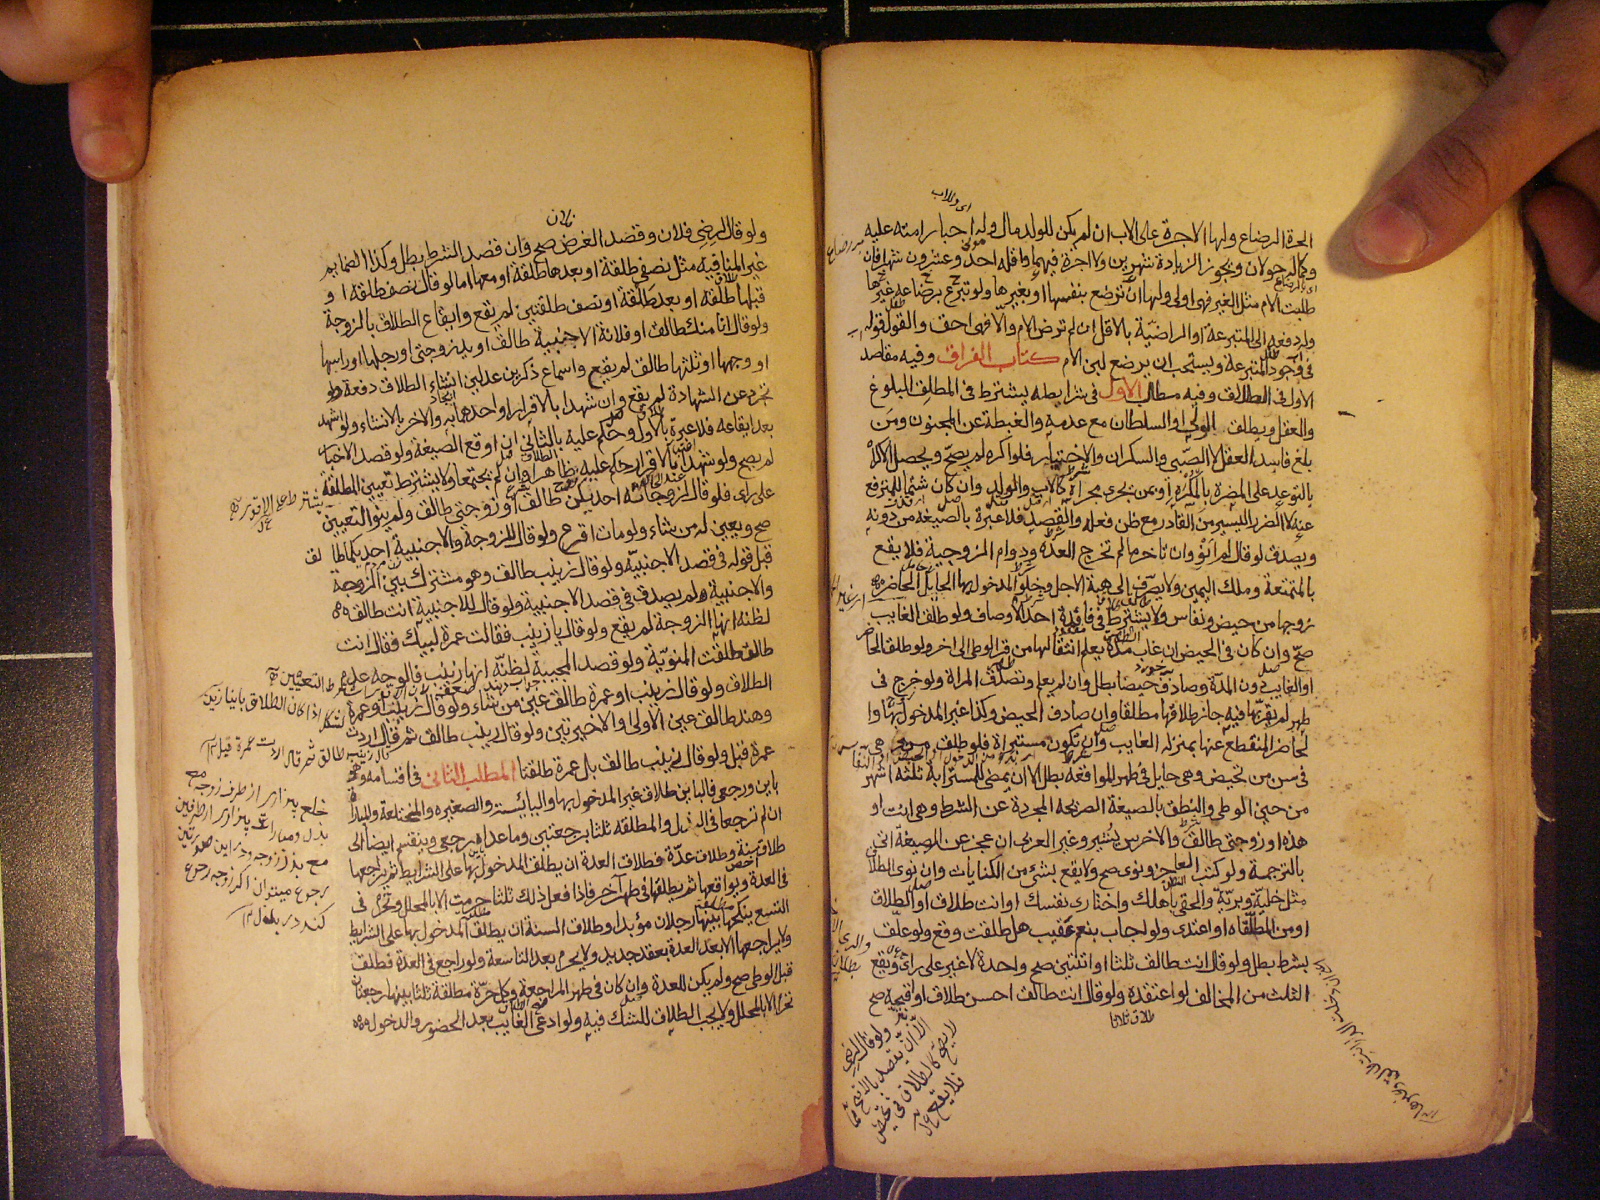 الحرة الرضاع ولها الاجرة على الاب ان لم يكن للولد مال وله اجبار امته عليه
وكماله حولان ويجوز الزيادة شهرين ولا اجرة فيهما واقله احد وعشرون شهرا فان
طلبت الام مثل الغير فهى اولى ولها ان ترضع بنفسها او بغيرها ولو تبرع برضاعه غيرها
وله دفعه الى المتبرعة او الراضية بالاقل ان لم ترض الام والا فهى احق والقول قوله
فى وجود المتبرعة ويستحب ان يرضع لبن الام كتاب الفراق وفيه مقاصد
الاول فى الطلاق وفيه مطالب الاول فى شرايطه يشترط فى المطلق البلوغ
والعقل ويطلق الولى او السلطان مع عدمه والغبطة عن المجنون ومن
بلغ فاسد العقل لا الصبى والسكران والاختيار فلو اكره لم يصح ويحصل الاكراه
بالتوعد على المضرة بالمكره او بمن يجرى مجراه كالاب والولد وان كان شتما للمترفع
عنه لا الضرر اليسير من القادر مع ظن فعله والقصد فلا عبرة بالصيغة من دونه
ويصدق لو قال لم انو وان تاخر ما لم تخرج العدة ودوام الزوجية فلا يقع
بالمتمتعة وملك اليمين ولا يصرف الى هبة الاجل وخلو المدخول بها الحايل الحاضر
زوجها من حيض ونفاس ولا يشترط فى فاقدة احد الاوصاف ولو طلق الغايب
صح وان كان فى الحيض ان غاب مدة يعلم انتقالها من قرء الوطى الى اخر ولو طلق الحاضر
او الغايب دون المدة وصادف حيضا بطل وان لم يعلم وتصدق المراة ولو خرج فى
طهر لم يقربها فيه جاز طلاقها مطلقا وان صادف الحيض وكذا غير المدخول بها وا
لحاضر المنقطع عنها بمنزلة الغايب وان تكون مستبراة فلو طلق هى
فى سن من تحيض وهى حايل فى طهر المواقعة بطل الا ان يمضى للمسترابة ثلثة اشهر
من حين الوطى والنطق بالصيغة الصريحة المجردة عن الشرط وهى انت او
هذه او زوجتى طالق والاخرس يشير وغير العربى ان عجز عن الصيغة اتى
بالترجمة ولو كتب العاجز ونوى صح ولا يقع بشىء من الكنايات وان نوى الطلاق
مثل خلية وبرية والحقى باهلك واختارى نفسك او انت طلاق او الطلاق
او من المطلقات او اعتدى ولو اجاب بنعم عقيب هل طلقت وقع ولو علق
بشرط بطل ولو قال انت طالق ثلثا او اثنتين صح واحدة لا غير على راى ويقع
الثلث من المخالف لو اعتقده ولو قال انت طالق احسن طلاق او اقبحه صح
طلاق ثلاثا
ولو قال لرضى فلان وقصد الغرض صح وان قصد الشرط بطل وكذا الضمايم
غير المنافية مثل نصفى طلقة او بعدها طلقة او معها اما لو قال نصف طلقة او
قبلها طلقة او بعد طلقة او نصف طلقتين لم يقع وايقاع الطلاق بالزوجة
ولو قال انا منك طالق او فلانة الاجنبية طالق او يد زوجتى او رجلها او راسها
او وجهها او ثلثها طالق لم يقع واسماع ذكرين عدلين انشاء الطلاق دفعة ولو
تجرد عن الشهادة لم يقع وان شهدا بالاقرار او احدهما به والاخر بالانشاء ولو اشهد
بعد ايقاعه فلا عبرة بالاول وحكم عليه بالثانى ان اوقع الصيغة ولو قصد الاخبار
لم يصح ولو شهدا بالاقرار حكم عليه ظاهرا وان لم يجتمعا ولا يشترط تعيين المطلقة
على راى فلو قال لزوجاته احديكن طالق او زوجتى طالق ولم ينو التعيين
صح ويعين له من شاء ولو مات اقرع ولو قال للزوجة والاجنبية احديكما طالق
قبل قوله فى قصد الاجنبية ولو قال زينب طالق وهو مشترك بين الزوجة
والاجنبية لم يصدق فى قصد الاجنبية ولو قال للاجنبية انت طالق
لظنه انها الزوجة لم يقع ولو قال يا زينب فقالت عمرة لبيك فقال انت
طالق طلقت المنوية ولو قصد المجيبة لظنه انها زينب فالوجه عدم
الطلاق ولو قال زينب او عمرة طالق عين من شاء ولو قال زينب او عمرة
وهند طالق عين الاولى والاخيرتين ولو قال زينب طالق ثم قال اردت
عمرة قبل ولو قال زينب طالق بل عمرة طلقتا المطلب الثانى فى اقسامه وهو
باين ورجعى فالباين طلاق غير المدخول بها واليائسة والصغيرة والمختلعة والمباراة
ان لم ترجعا فى البذل والمطلقة ثلثا برجعتين وما عداه رجعى وينقسم ايضا الى
طلاق سنة وطلاق عدة فطلاق العدة ان يطلق المدخول بها على الشرايط ثم يراجعها
فى العدة ويواقعها ثم يطلقها فى طهر آخر فاذا فعل ذلك ثلثا حرمت الا بالمحلل وتحرم فى
التسع ينكحها بينها رجلان مؤبدا وطلاق السنة ان يطلق المدخول بها على الشرايط
ولا يراجعها الا بعد العدة بعقد جديد ولا يحرم بعد التاسعة ولو راجع فى العدة فطلق
قبل الوطى صح ولم يكن للعدة وان كان فى طهر المراجعة وكل حرة مطلقة ثلثا بينها رجعتان
تحرم الا بالمحلل ولا يجب الطلاق للشك فيه ولو ادعى الغايب بعد الحضور والدخول
خلع بيزارى از طرف زوجه مع
بذل ومبارات بيزارى از طرفين
مع بذل زوجه ودر اين صورتين
رجوع ميتوان اكر زوجه رجوع
كند در بذل